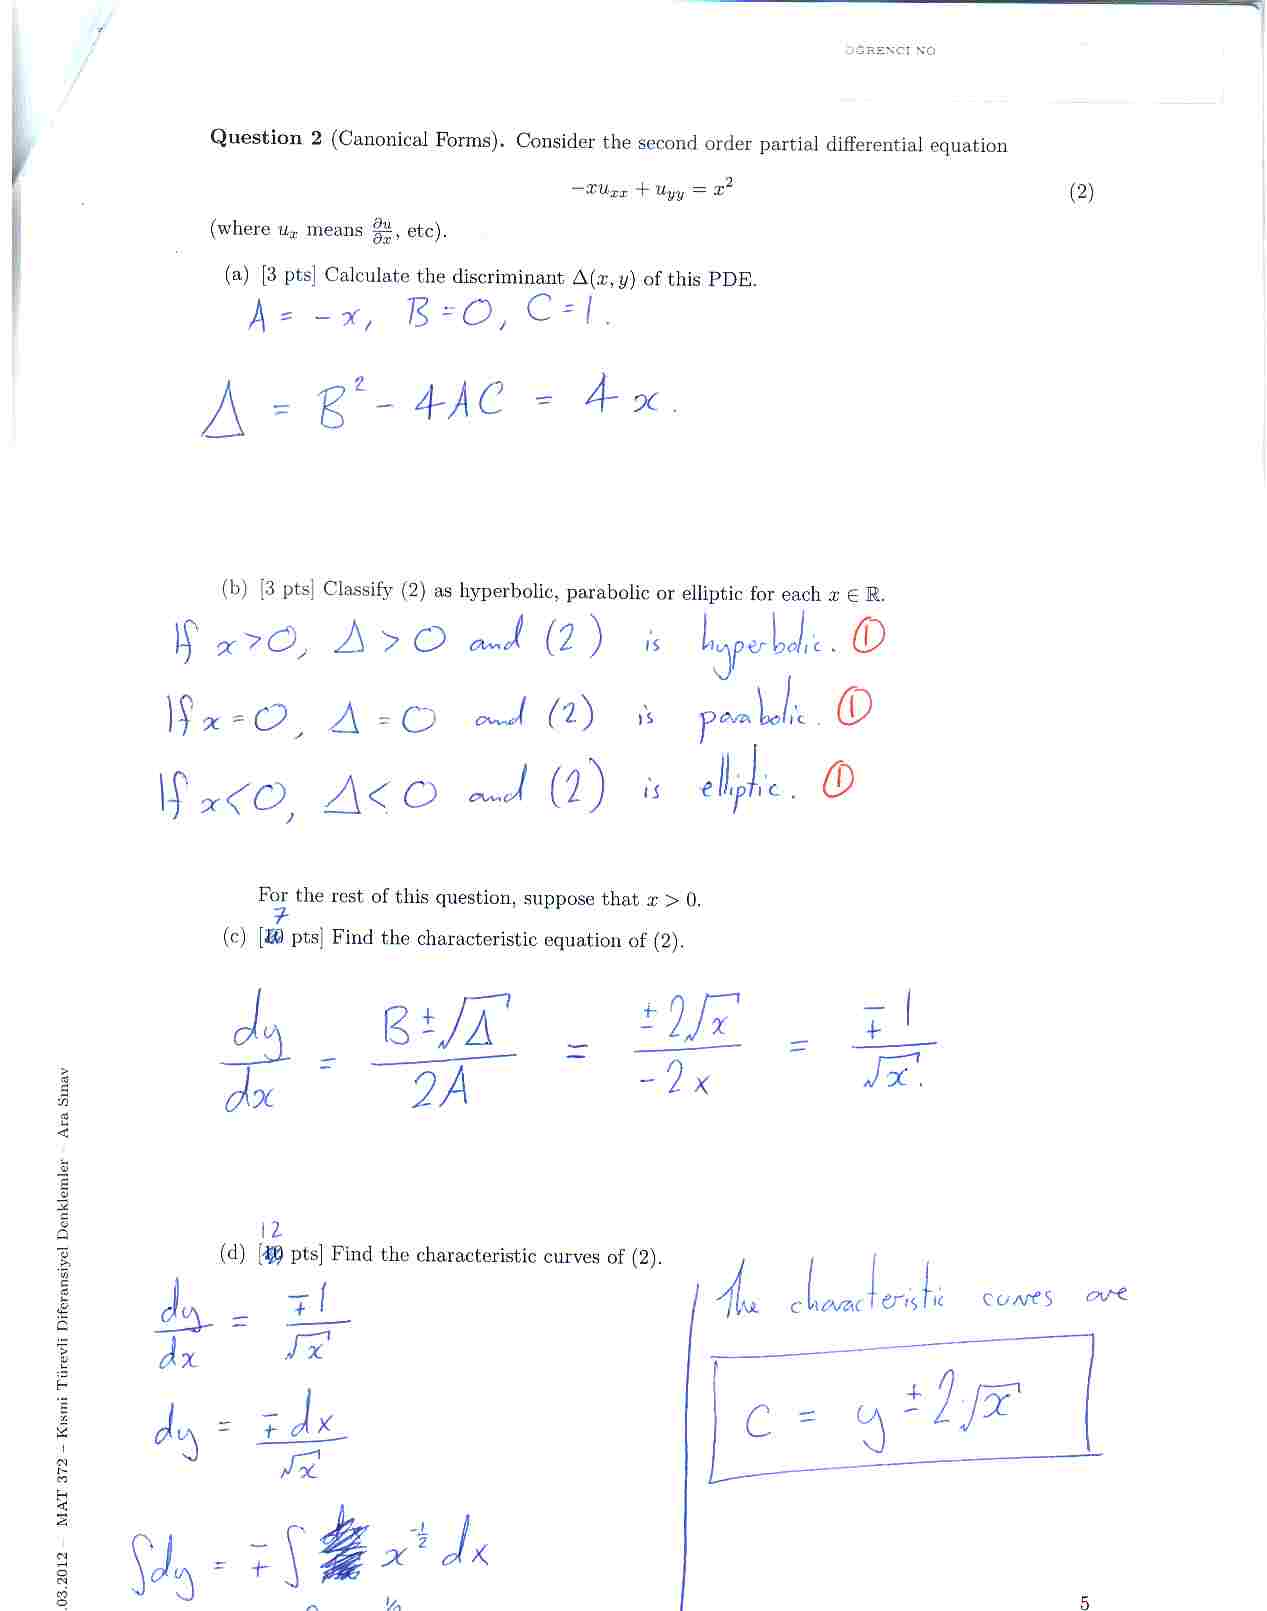 ÖĞRENCİ NO
Question 2 (Canonical Forms). Consider the second order partial differential equation
−xu_xx + u_yy = x² (2)
(where u_x means ∂u/∂x, etc).
(a) [3 pts] Calculate the discriminant Δ(x, y) of this PDE.
A = −x, B = 0, C = 1.
Δ = B² − 4AC = 4x.
(b) [3 pts] Classify (2) as hyperbolic, parabolic or elliptic for each x ∈ ℝ.
If x>0, Δ > 0 and (2) is hyperbolic. ①
If x=0, Δ = 0 and (2) is parabolic. ①
If x<0, Δ < 0 and (2) is elliptic. ①
For the rest of this question, suppose that x > 0.
7
(c) [ pts] Find the characteristic equation of (2).
dy/dx = (B ± √Δ)/2A = ±2√x/−2x = ∓1/√x.
12
(d) [ pts] Find the characteristic curves of (2).
dy/dx = ∓1/√x
dy = ∓dx/√x
∫dy = ∓∫ x^(-1/2) dx
The characteristic curves are
C = y ± 2√x
.03.2012 – MAT 372 – Kısmi Türevli Diferansiyel Denklemler – Ara Sınav
5